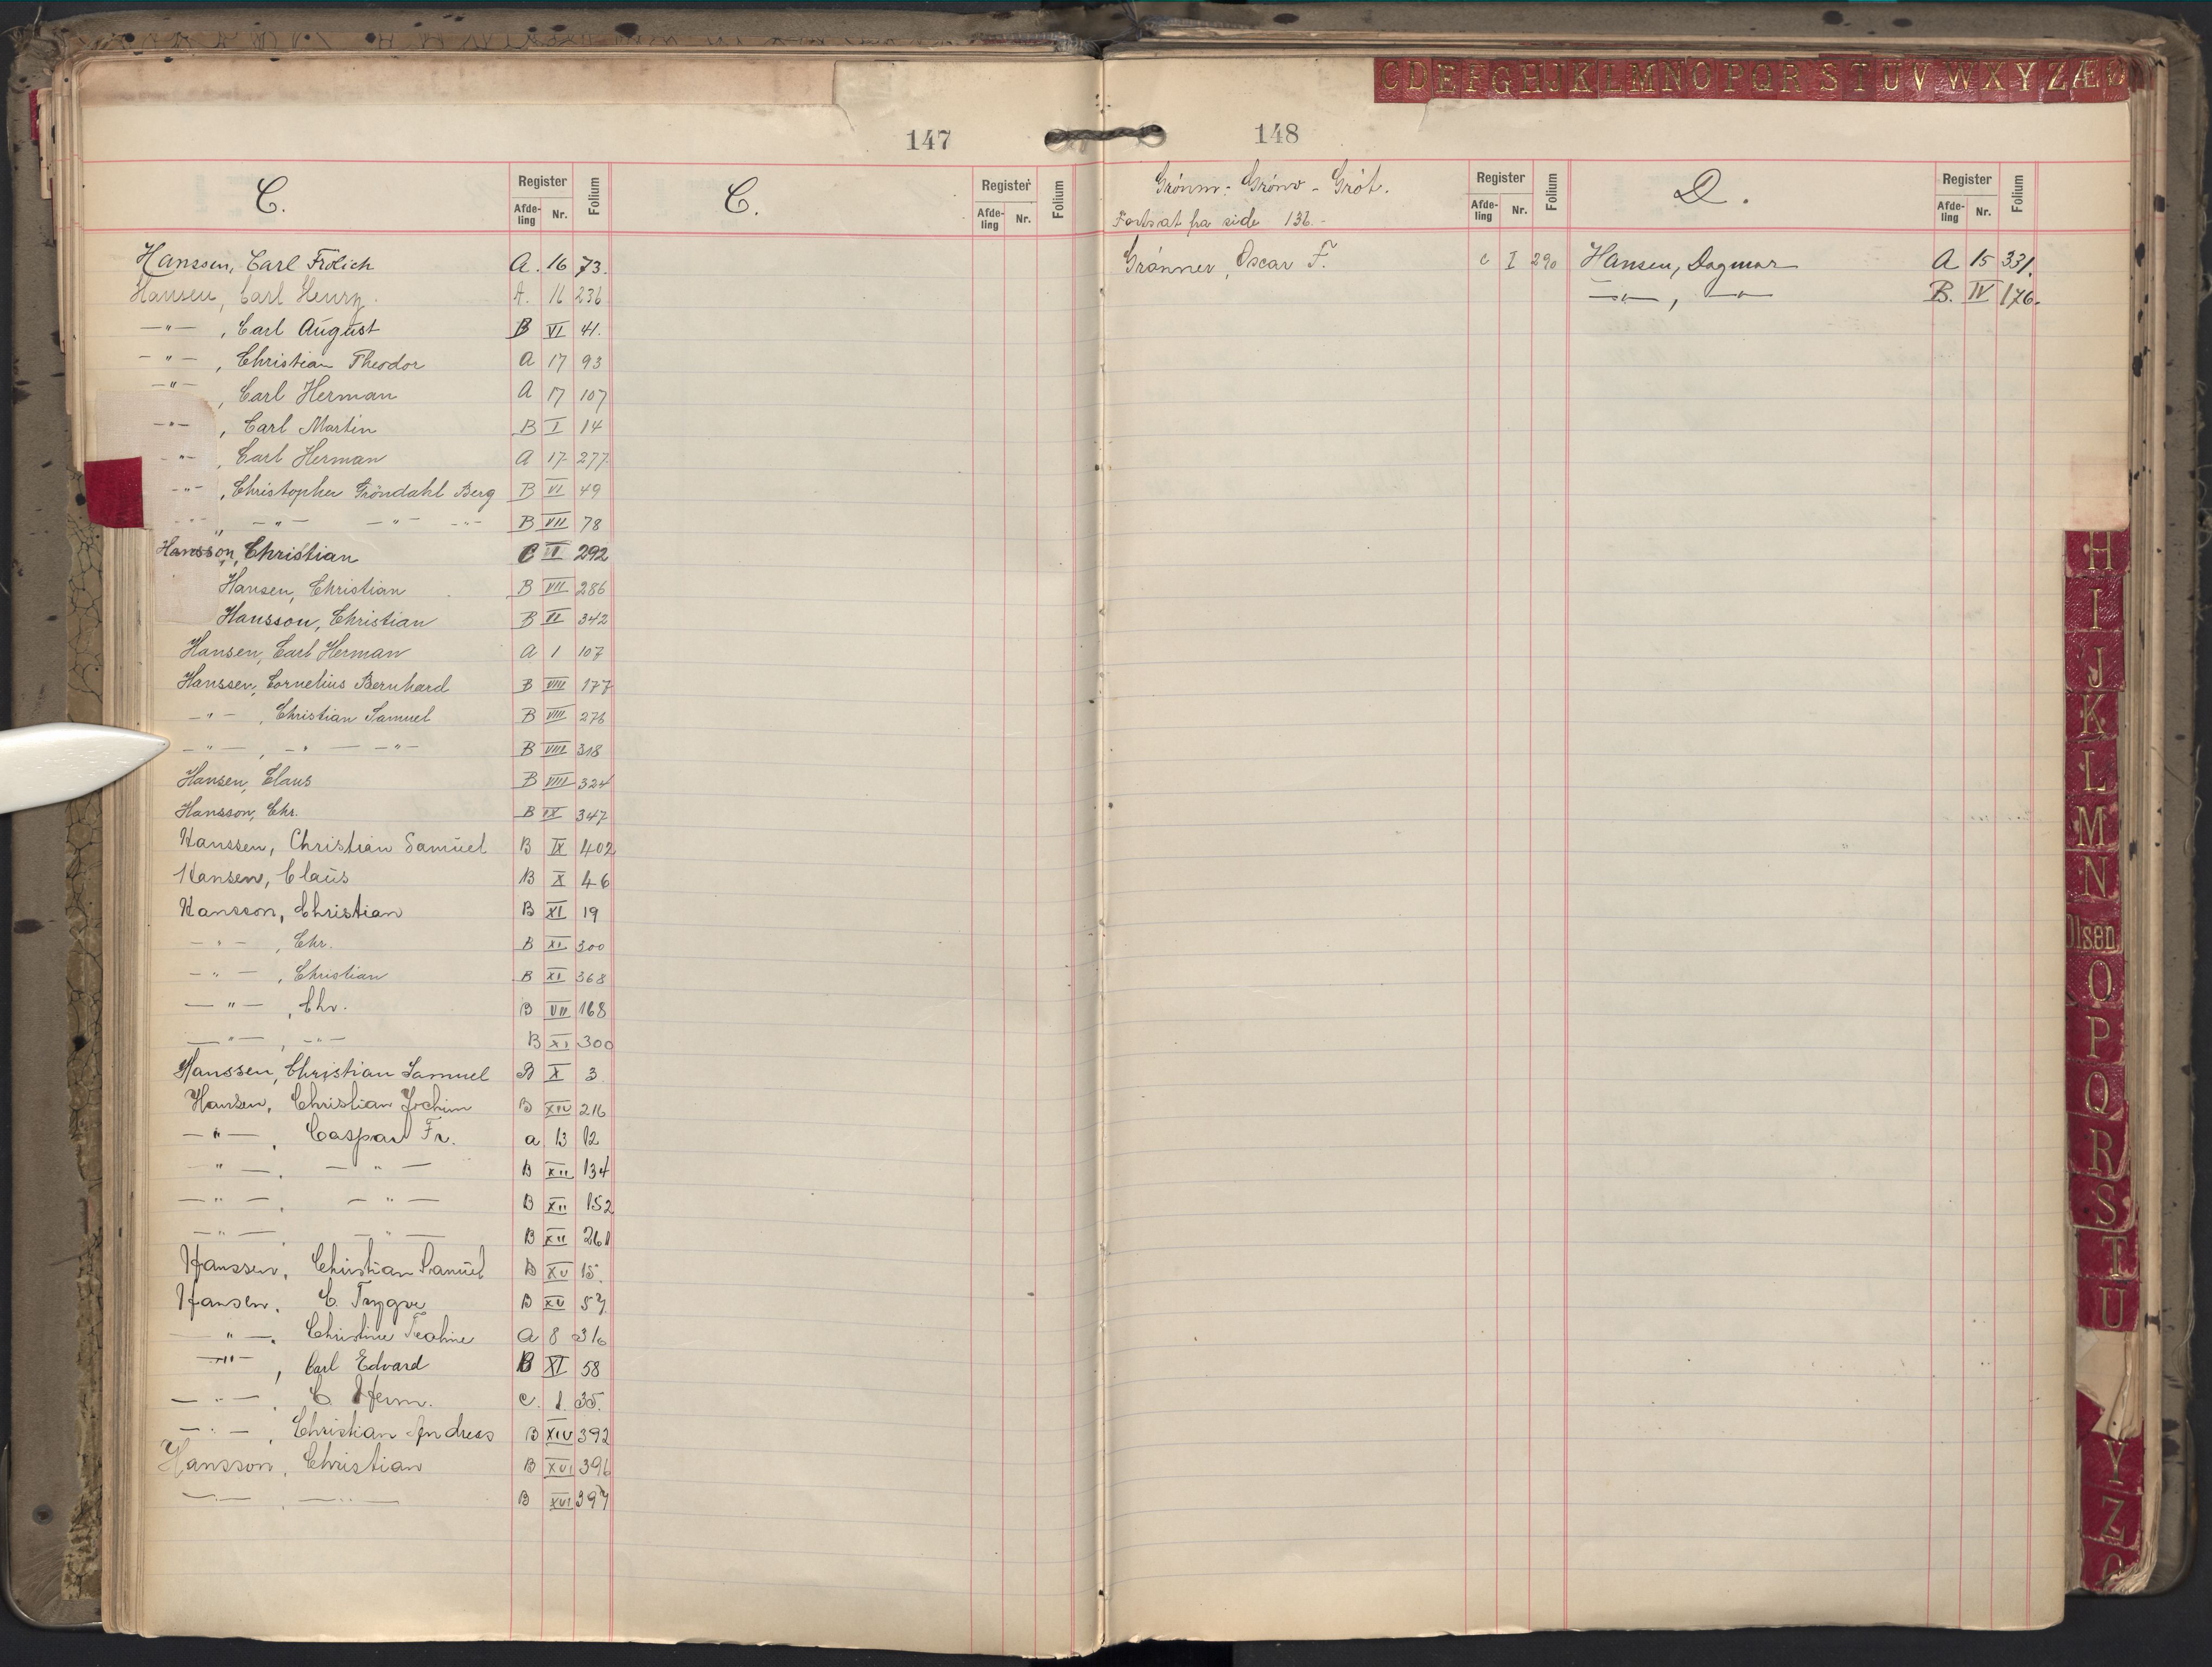 C D E F G H J K L M N O P Q R S T U V W X Y Z Æ Ø
147
C.
Register
Afde-ling Nr. Folium
Hanssen, Carl Frölich A. 16 73.
Hansen, Carl Henry. A. 16 236
—"— , Carl August B VI 41.
—"— , Christian Theodor A 17 93
—"— , Carl Herman A 17 107
—"— , Carl Martin B I 14
—"— , Carl Herman A 17 277
—"— , Christopher Gröndahl Berg B VI 49
—"— —"— —"— —"— B VII 78
Hansson, Christian C II 292
Hansen, Christian B VII 286
Hansson, Christian B VI 342
Hansen, Carl Herman A 1 107
Hanssen, Cornelius Bernhard B VIII 177
—"— , Christian Samuel B VIII 276
—"— , —"— —"— B VIII 318
Hansen, Claus B VIII 324
Hansson, Chr. B IX 347
Hanssen, Christian Samuel B IX 402
Hansen, Claus B X 46
Hansson, Christian B XI 19
—"— , Chr. B XI 300
—"— , Christian B XI 368
—"— , Chr. B VII 168
—"— , —"— B XI 300
Hanssen, Christian Samuel B X 3
Hansen, Christian Jochim B XIV 216
—"— , Caspar Fr. a 13 12
—"— , —"— B XII 134
—"— , —"— B XII 152
—"— , —"— B XII 261
Hanssen, Christian Samuel B XV 15.
Hansen, C. Trygve B XV 57
—"— , Christine A 8 316
—"— , Carl Edvard B XI 58
—"— , C. Herm. C. 1. 35.
—"— , Christian Andreas B XIV 392
Hansson, Christian B XVI 396
—"— , —"— B XVI 397
C.
Register
Afde-ling Nr. Folium
148
Grönm- Grönv- Gröt.
Fortsat fra side 136.-
Register
Afde-ling Nr. Folium
Grönner, Oscar F. C I 290
D.
Register
Afde-ling Nr. Folium
Hansen, Dagmar A 15 331.
—"— , —"— B. IV 176.
H
I
J
K
L
M
N
Olsen
O
P
Q
R
S
T
U
Y
Z